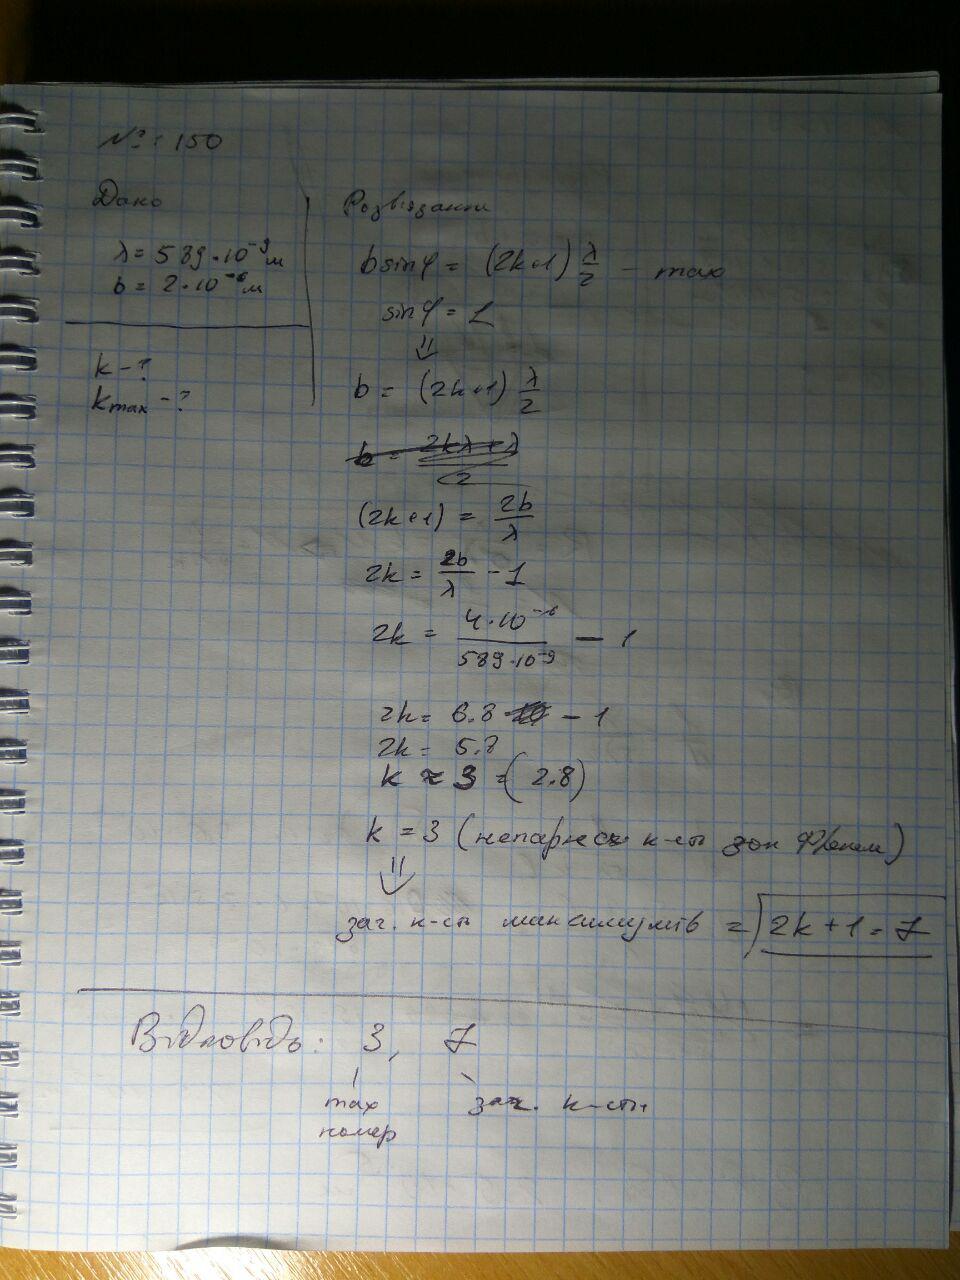 №: 150
Дано
λ = 589·10⁻⁹ м
b = 2·10⁻⁶ м
k - ?
kmax - ?
Розв'язання
b sinφ = (2k+1) λ/2 - max
sinφ = 1
⇓
b = (2k+1) λ/2
b = 2kλ+λ/2
(2k+1) = 2b/λ
2k = 2b/λ - 1
2k = 4·10⁻⁶/589·10⁻⁹ - 1
2k = 6.8 - 1
2k = 5.8
k ≈ 3 = (2.8)
k = 3 (непарна к-сть зон Френеля)
⇓
заг. к-сть максимумів = 2k+1 = 7
Відповідь: 3, 7
max заг. к-сть
номер